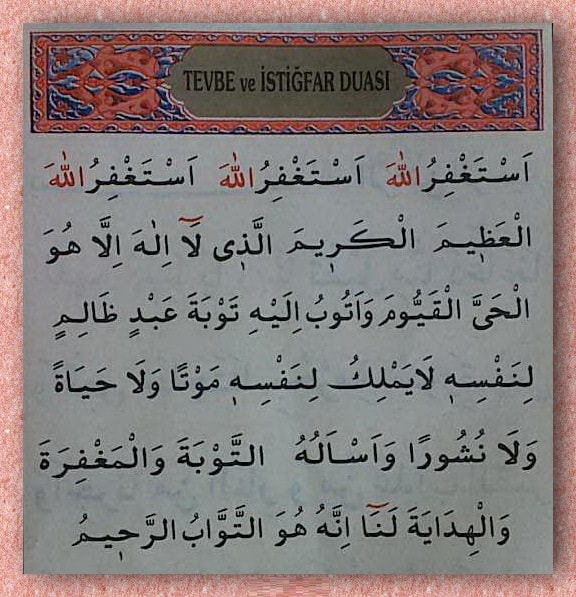 TEVBE ve İSTİĞFAR DUASI
اَسْتَغْفِرُ اللهَ اَسْتَغْفِرُ اللهَ اَسْتَغْفِرُ اللهَ
الْعَظ۪يمَ الْكَر۪يمَ الَّذ۪ى لَٓا اِلٰهَ اِلَّا هُوَ
الْحَىَّ الْقَيُّومَ وَاَتُوبُ اِلَيْهِ تَوْبَةَ عَبْدٍ ظَالِمٍ
لِنَفْسِه۪ لَايَمْلِكُ لِنَفْسِه۪ مَوْتًا وَلَا حَيَاةً
وَلَا نُشُورًا وَاَسْاَلُهُ التَّوْبَةَ وَالْمَغْفِرَةَ
وَالْهِدَايَةَ لَنَٓا اِنَّهُ هُوَ التَّوَّابُ الرَّح۪يمُ